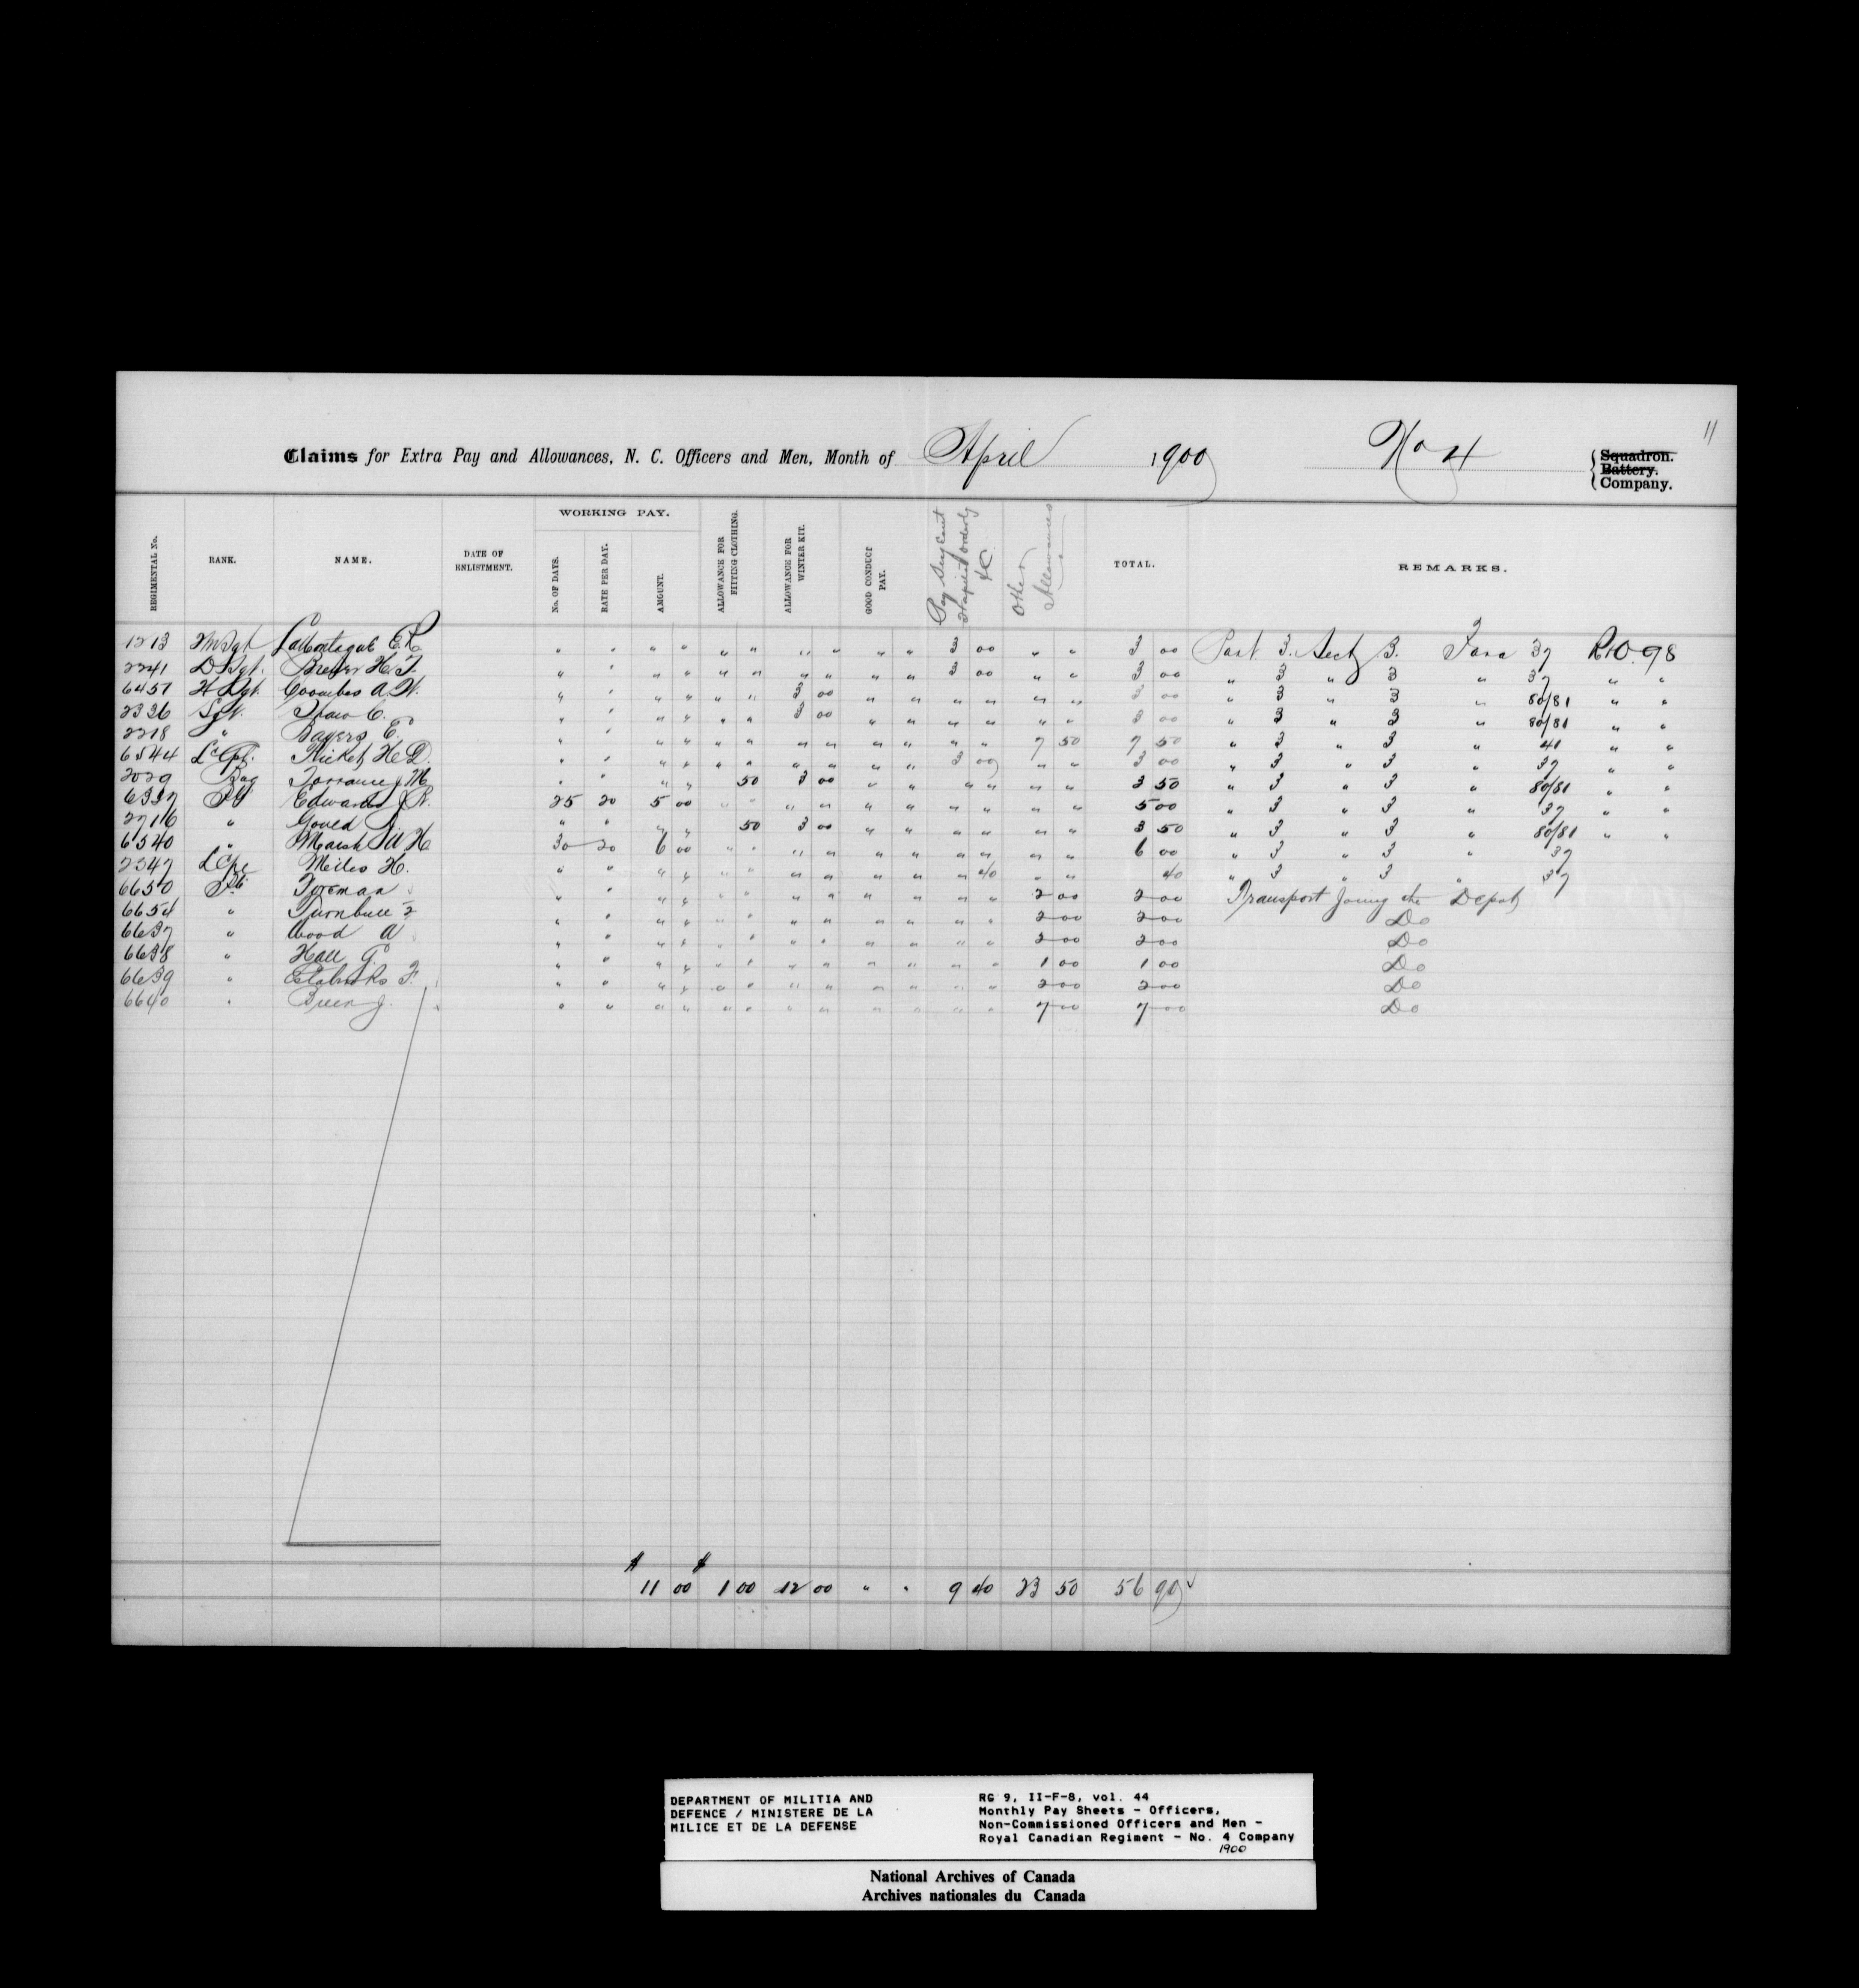 11
Claims for Extra Pay and Allowances, N. C. Officers and Men, Month of April 1900 No 4 Squadron. Battery. Company.
REGIMENTAL No. RANK. NAME. DATE OF ENLISTMENT. WORKING PAY. No. OF DAYS. RATE PER DAY. AMOUNT. ALLOWANCE FOR FITTING CLOTHING. ALLOWANCE FOR WINTER KIT. GOOD CONDUCT PAY. Pay Sergeant Hospital Orderly &c Other Allowances TOTAL. REMARKS.
1213 E. " " " " " " " " " " 3 00 " " 3 00 Part 3. Sect 3. Para 37 R+O. 98
2241 Brewer H. " " " " " " " " " " 3 00 " " 3 00 " 3 " 3 " 37 " "
6457 Coombes A. W. " " " " " " 3 00 " " " " " " 3 00 " 3 " 3 " 80/81 " "
2336 Sgt. Shaw C. " " " " " " 3 00 " " " " " " 3 00 " 3 " 3 " 80/81 " "
2218 " Bayers E. " " " " " " " " " " " " 7 50 7 50 " 3 " 3 " 41 " "
6544 Ricketts H D. " " " " " " " " " " 3 00 " " 3 00 " 3 " 3 " 37 " "
2029 Bug Torrance J M. " " " " 50 3 00 " " " " " " 3 50 " 3 " 3 " 80/81 " "
6337 Pte Edwards J R. 25 20 5 00 " " " " " " " " " " 5 00 " 3 " 3 " 37 " "
2716 " Gould " " " " 50 3 00 " " " " " " 3 50 " 3 " 3 " 80/81 " "
6540 " Marsh W H 30 20 6 00 " " " " " " " " " " 6 00 " 3 " 3 " 37
2347 Miles H. " " " " " " " " " " " 40 " " 40 " 3 " 3 " 37
6650 Pte Foreman " " " " " " " " " " " " 2 00 2 00 Transport Joining the Depot
6654 " Turnbull " " " " " " " " " " " " 2 00 2 00 Do
6637 " Wood A " " " " " " " " " " " " 2 00 2 00 Do
6638 " Hall G. " " " " " " " " " " " " 1 00 1 00 Do
6639 " F. " " " " " " " " " " " " 2 00 2 00 Do
6640 " J. " " " " " " " " " " " " 7 00 7 00 Do
$ $
11 00 1 00 12 00 " " 9 40 23 50 56 90
DEPARTMENT OF MILITIA AND
DEFENCE / MINISTERE DE LA
MILICE ET DE LA DEFENSE
RG 9, II-F-8, vol. 44
Monthly Pay Sheets - Officers,
Non-Commissioned Officers and Men -
Royal Canadian Regiment - No. 4 Company
1900
National Archives of Canada
Archives nationales du Canada